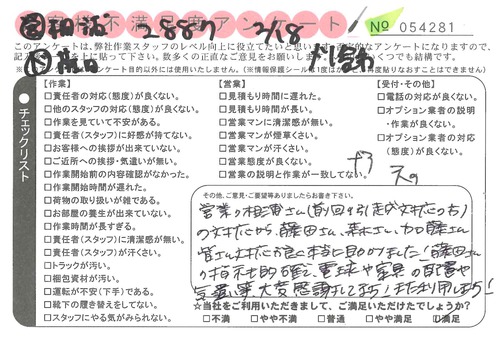 お客様不満度アンケート
2887 2/18
№ 054281
このアンケートは、弊社作業スタッフのレベル向上に役立てたいと思います。
いくつでも結構です。
チェックリスト
【作業】
□責任者の対応(態度)が良くない。
□他のスタッフの対応(態度)が良くない。
□作業を見ていて不安がある。
□責任者(スタッフ)に好感が持てない。
□お客様への挨拶が出来ていない。
□ご近所への挨拶・気遣いが無い。
□作業開始前の内容確認がなかった。
□作業開始時間が遅れた。
□荷物の取り扱いが雑である。
□お部屋の養生が出来ていない。
□作業時間が長すぎる。
□責任者(スタッフ)に清潔感が無い。
□責任者(スタッフ)が汗くさい。
□トラックが汚い。
□梱包資材が汚い。
□運転が不安(下手)である。
□靴下の履き替えをしてない。
□スタッフにやる気がみられない。
【営業】
□見積もり時間に遅れた。
□見積もり時間が長い。
□営業マンに清潔感が無い。
□営業マンが煙草くさい。
□営業マンが汗くさい。
□営業態度が良くない。
□営業の説明と作業が一致してない。
【受付・その他】
□電話の対応が良くない。
□オプション業者の説明
・作業が良くない。
□オプション業者の対応
(態度)が良くない。
その他、ご意見・ご要望等ありましたらお書き下さい。
営業の相曽さん(前回の引越が対応の方)
の対応から、藤田さん、森さん、加藤さん
皆さん対応が良く本当に助かりました!藤田さん
の指示も的確で、電球や家具の配置や
気遣い等、大変感謝してます!またお利用します!
☆当社をご利用いただきまして、ご満足いただけたでしょうか?
□不満 □やや不満 □普通 □やや満足 □満足